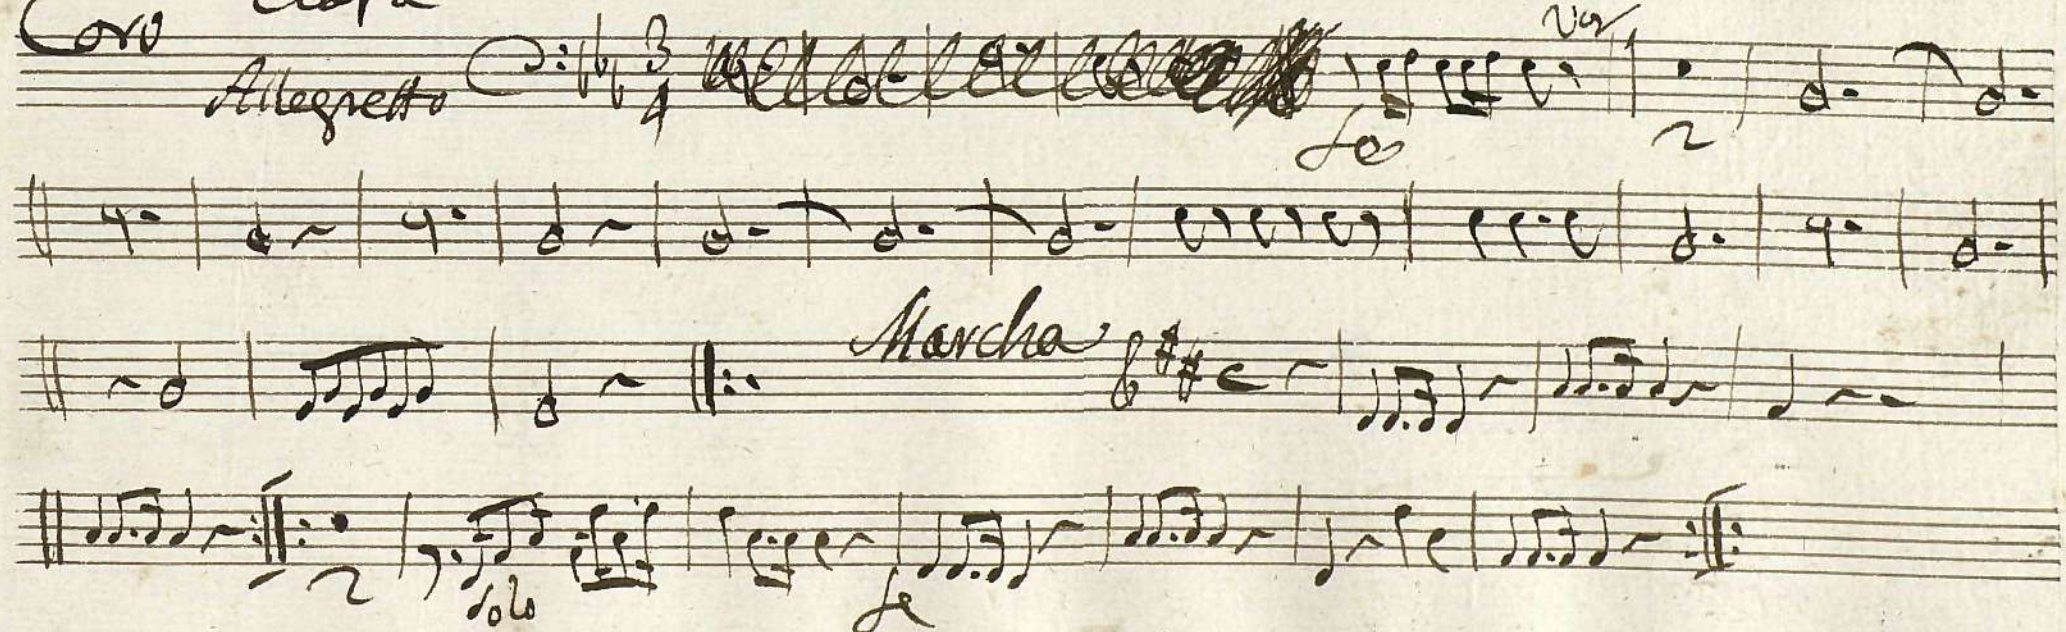 Coro
Allegretto 3/4
fe 2
Marcha
2 solo fe